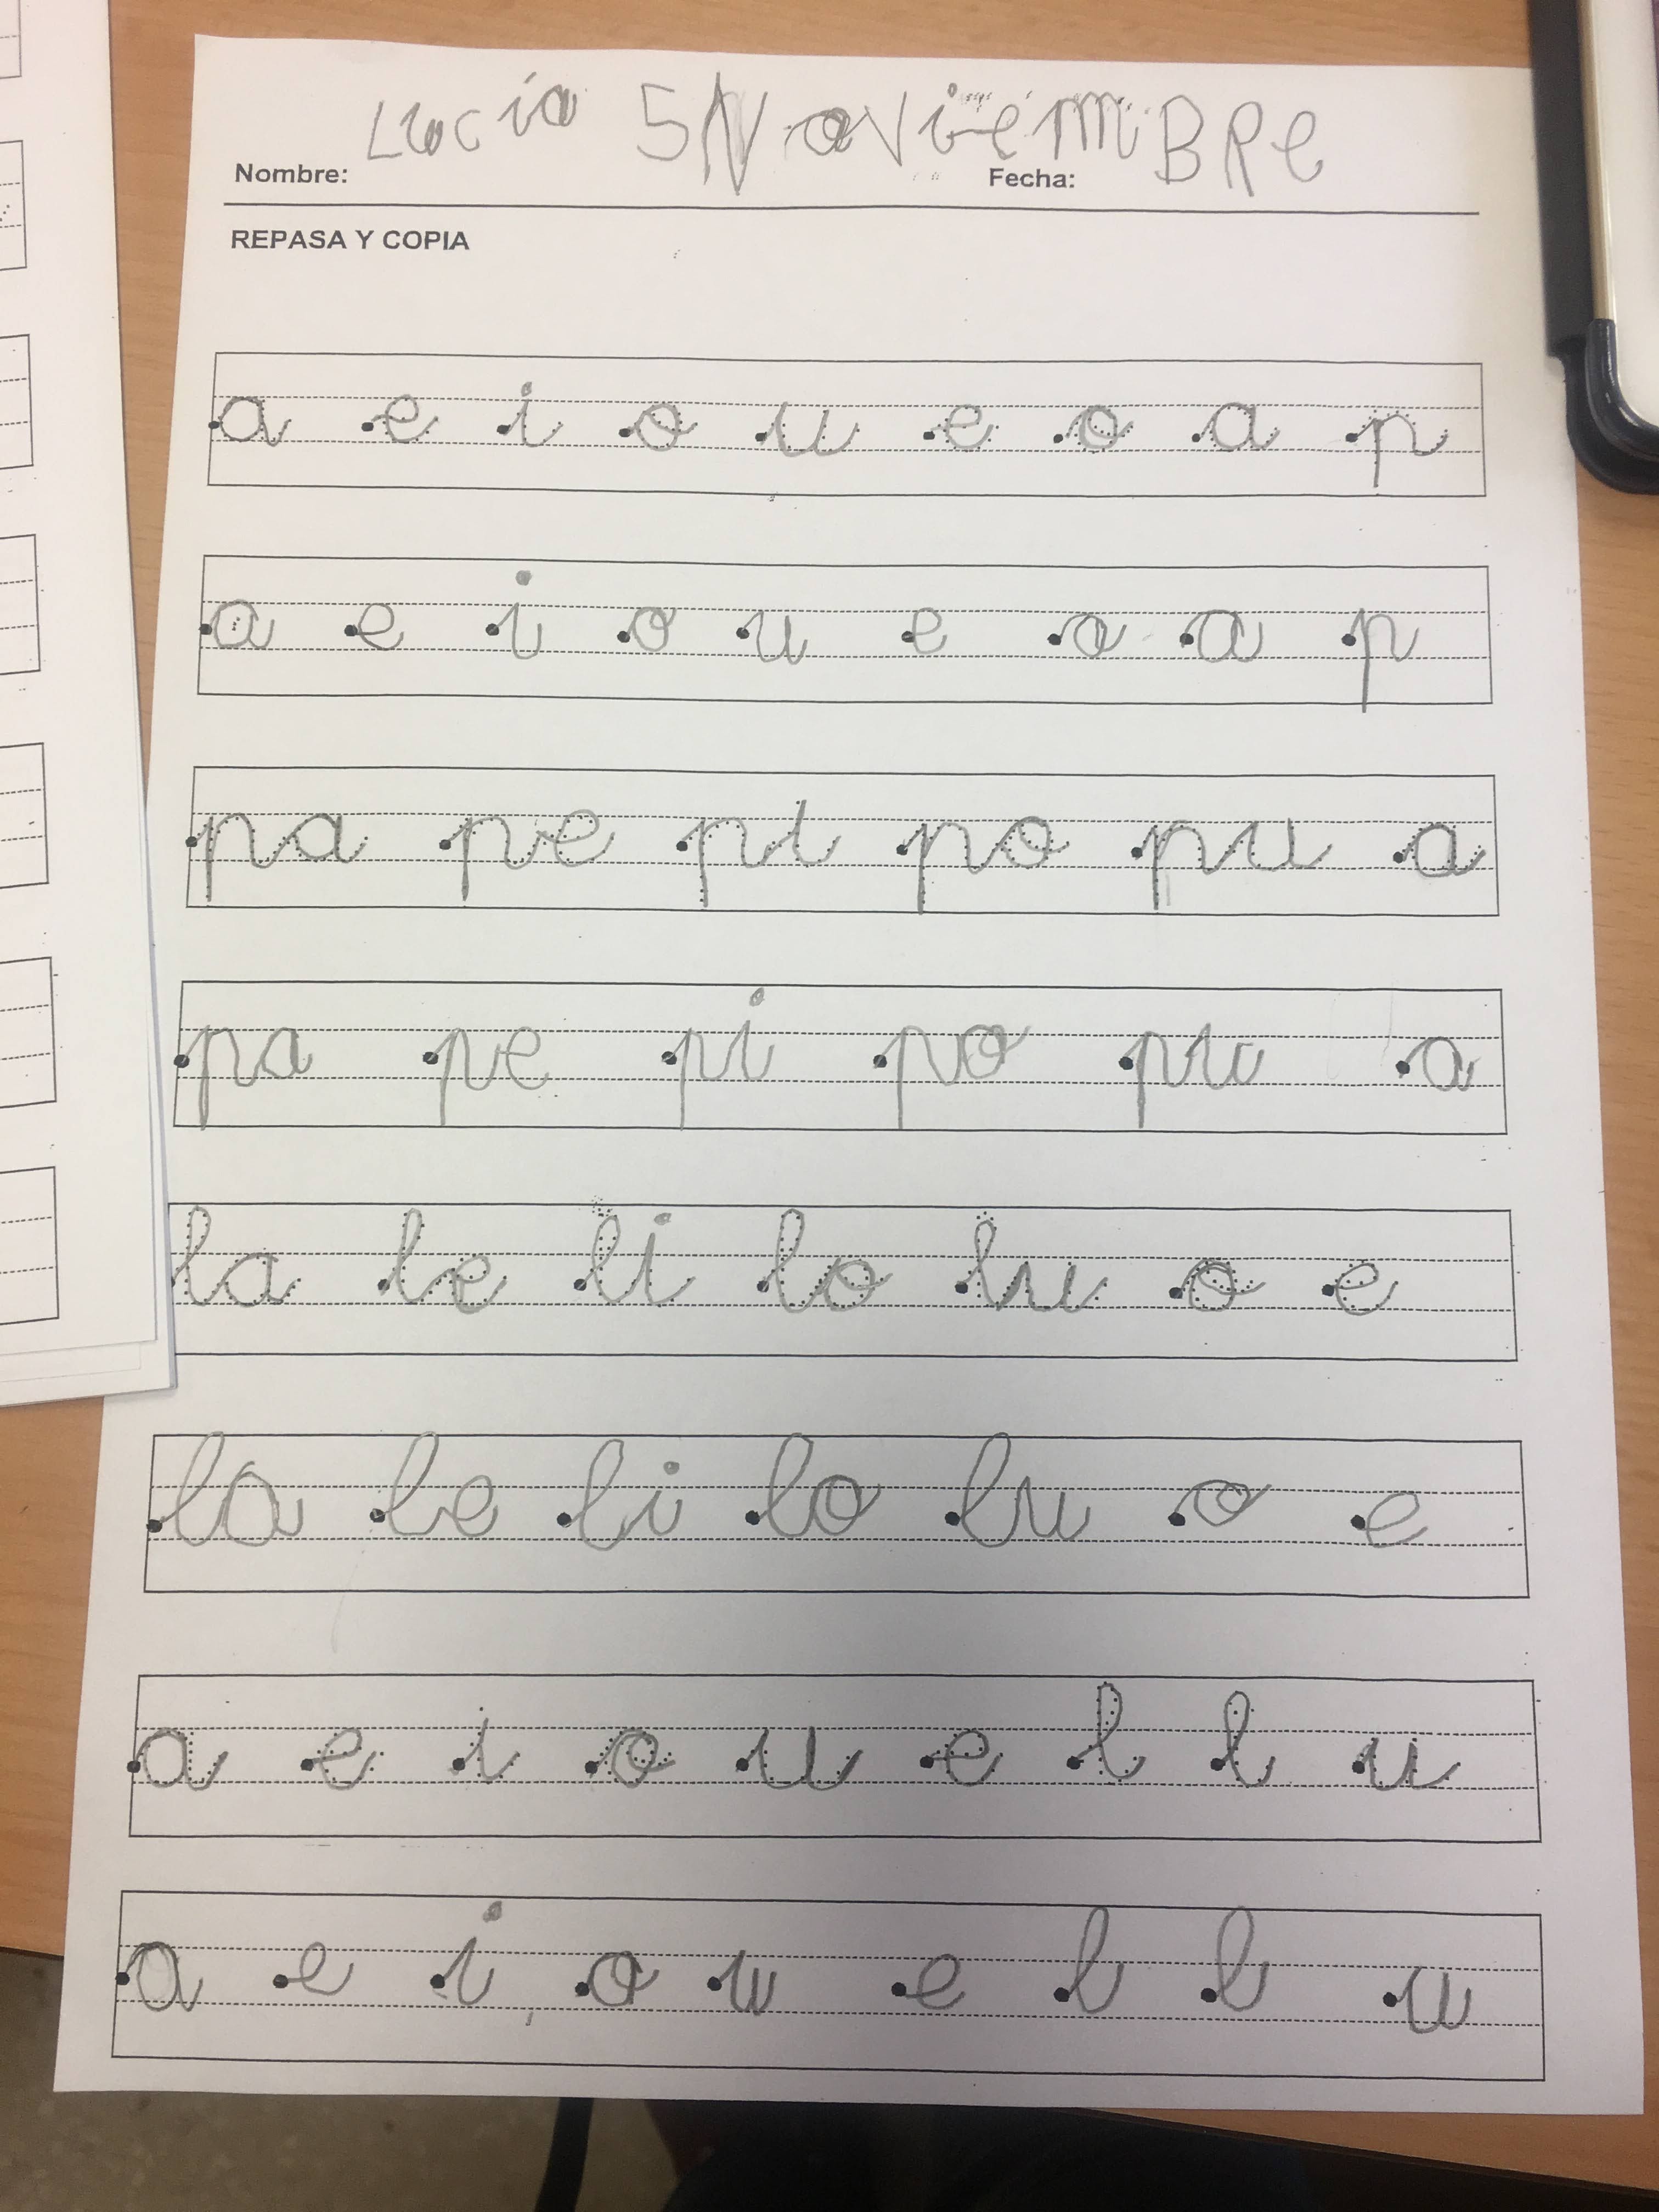 Lucía 5 NoviemBRe
Nombre: Fecha:
REPASA Y COPIA
a e i o u e o a p
a e i o u e o a p
pa pe pi po pu a
pa pe pi po pu a
la le li lo lu o e
la le li lo lu o e
a e i o u e l l u
a e i o u e l l u